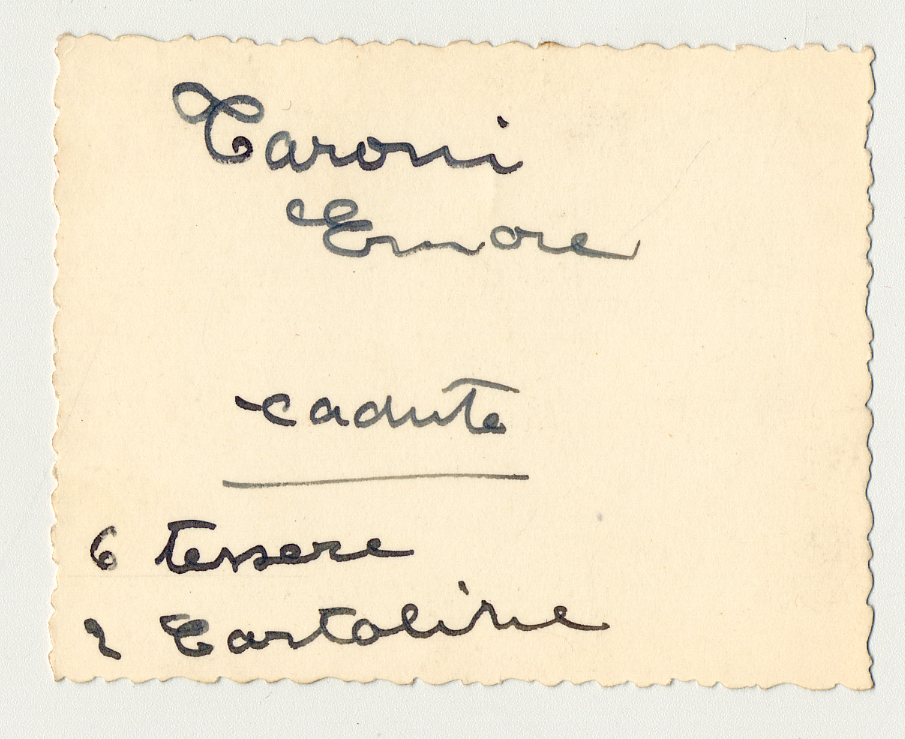 Caroni
Emore
caduto
6 tessere
2 Cartoline